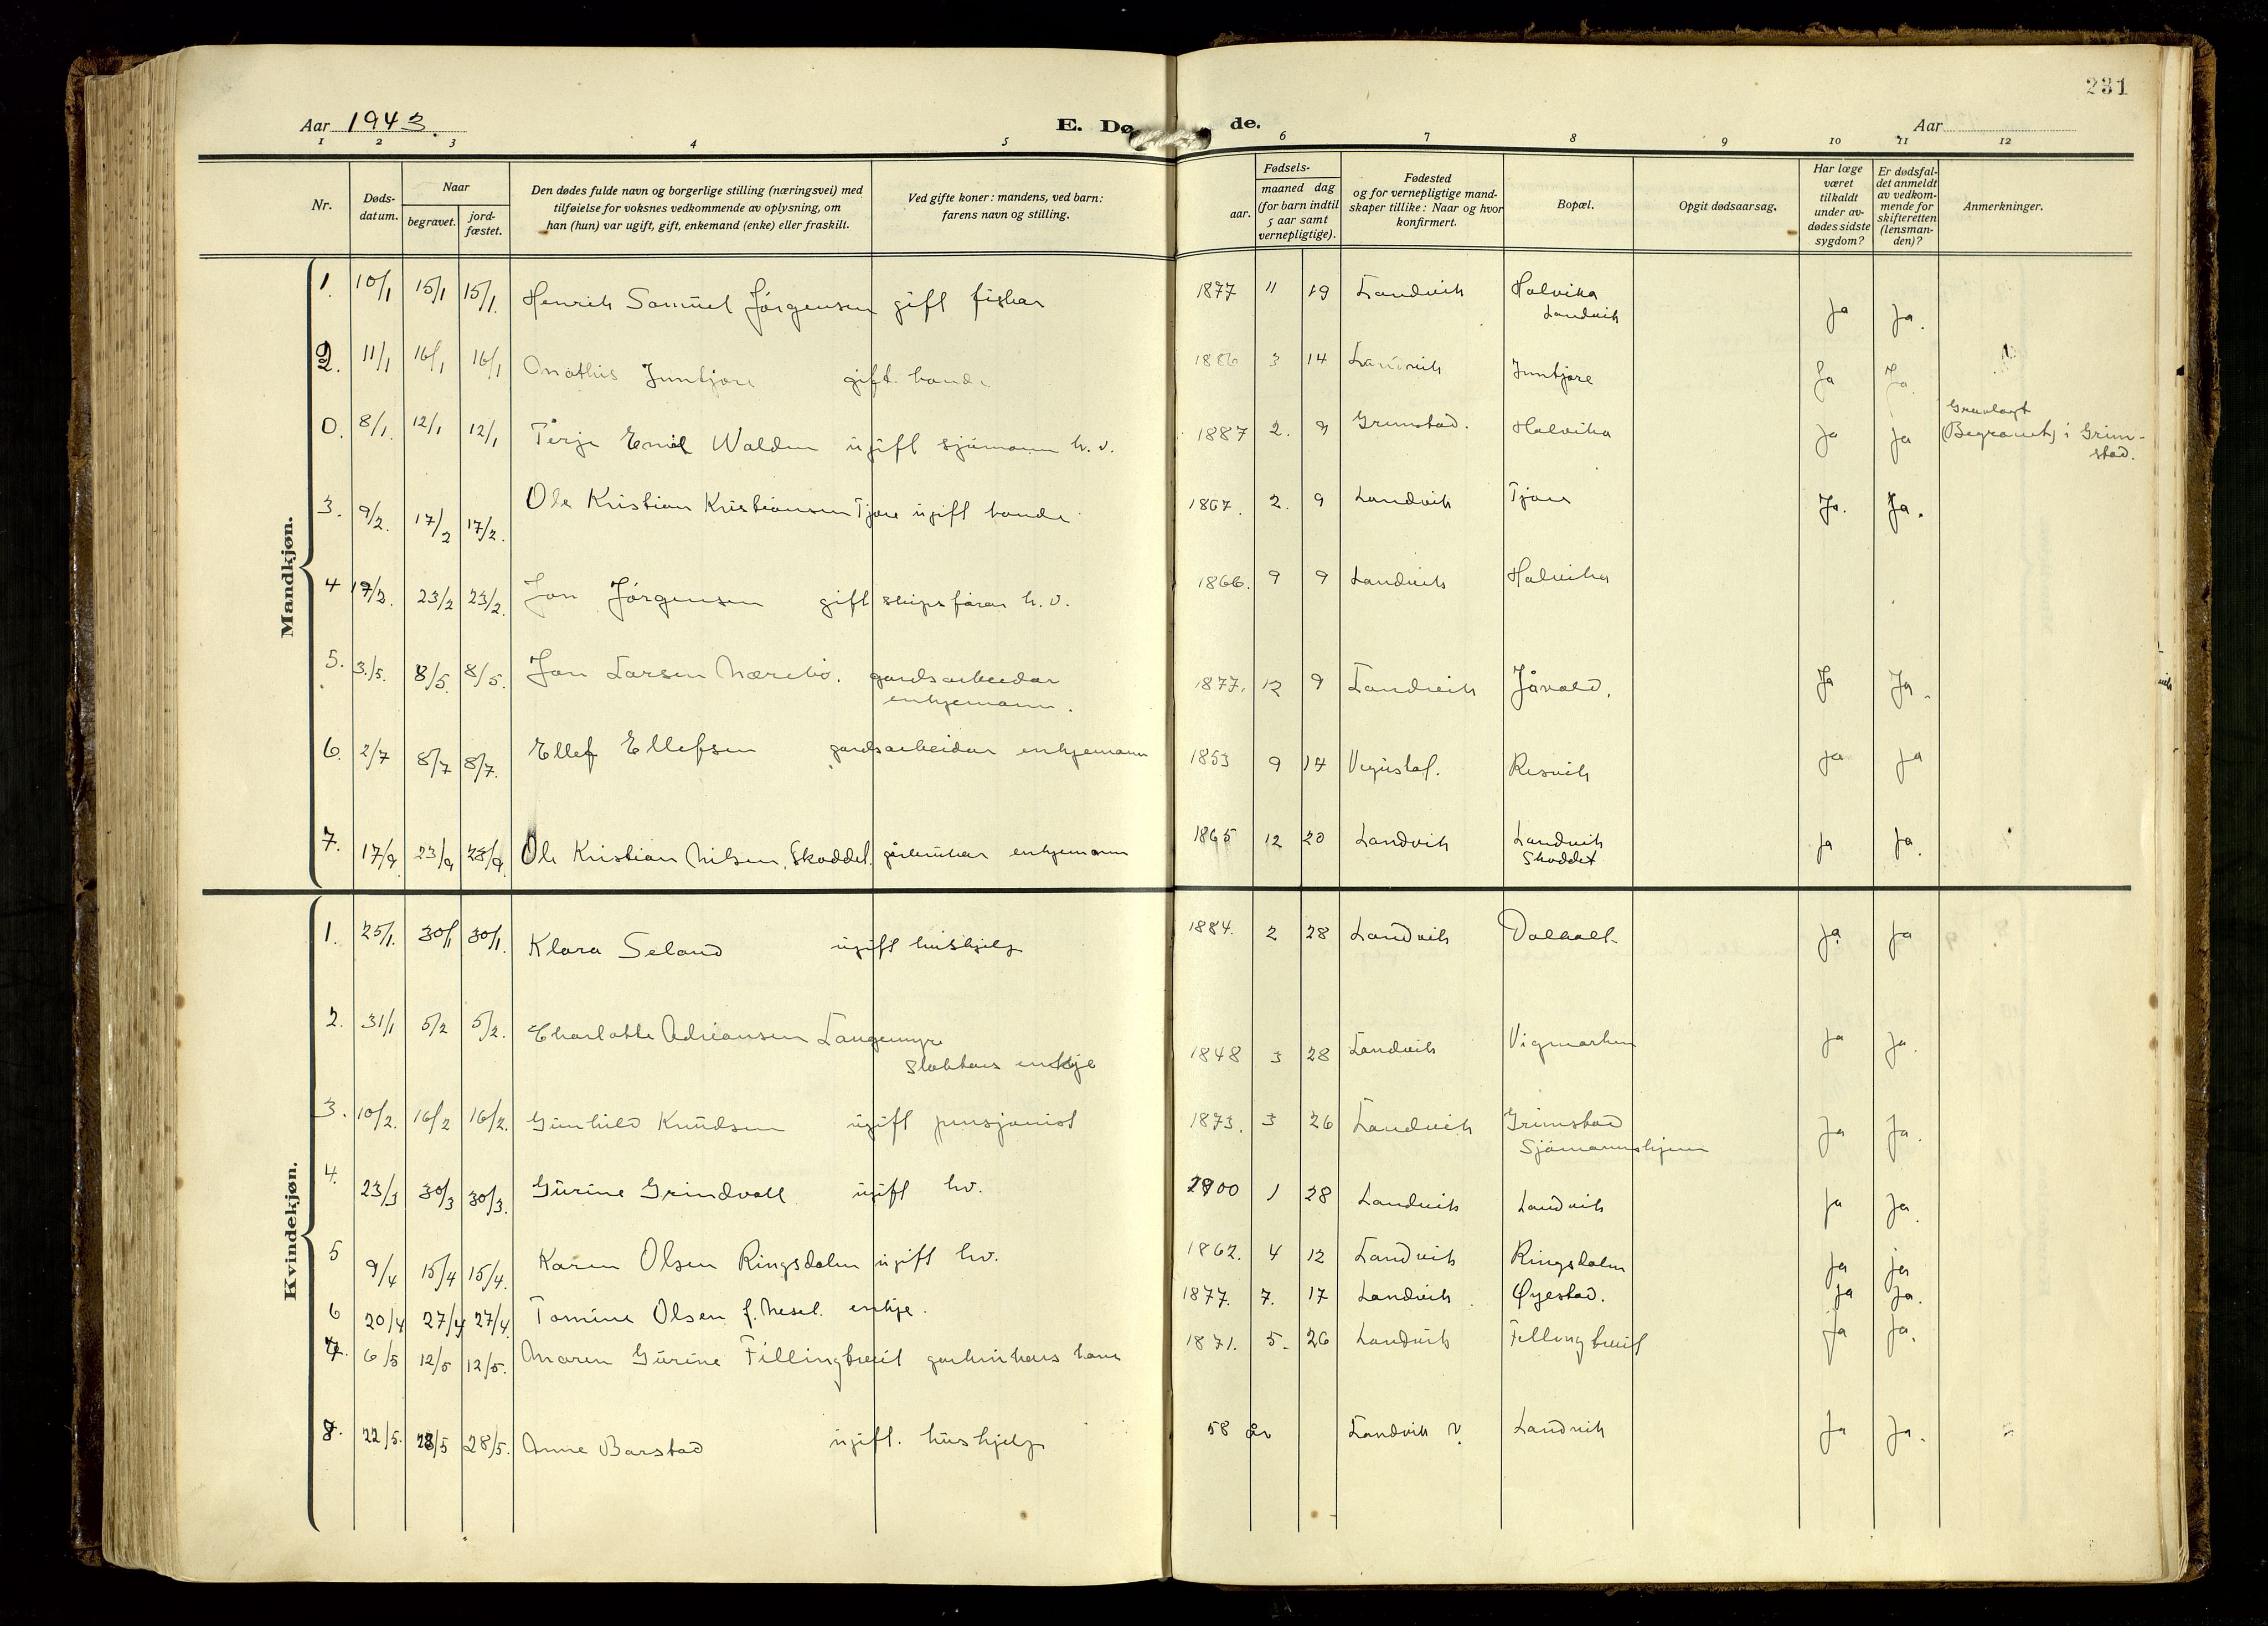 231
Aar 1943.
E. Dø
de.
Aar
1 2 3 4 5 6 7 8 9 10 11 12
Nr.
Døds-
datum.
Naar
begravet.
jord-
fæstet.
Den dødes fulde navn og borgerlige stilling (næringsvei) med
tilføielse for voksnes vedkommende av oplysning, om
han (hun) var ugift, gift, enkemand (enke) eller fraskilt.
Ved gifte koner: mandens, ved barn:
farens navn og stilling.
Fødsels-
aar.
maaned dag
(for barn indtil
5 aar samt
vernepligtige).
Fødested
og for vernepligtige mand-
skaper tillike: Naar og hvor
konfirmert.
Bopæl.
Opgit dødsaarsag.
Har læge
været
tilkaldt
under av-
dødes sidste
sygdom?
Er dødsfal-
det anmeldt
av vedkom-
mende for
skifteretten
(lensman-
den)?
Anmerkninger.
Mandkjøn.
1. 10/1 15/1 15/1. Henrik Samuel Jörgensen gift fiskar 1877 11 19 Landvik Halvika
Landvik Ja Ja.
2. 11/1 16/1 16/1 Mathis Inntjore gift. bonde 1886 3 14 Landvik Inntjore Ja Ja
0. 8/1. 12/1 12/1 Terje Emil Walden ugift sjömann h. v. 1887 2. 9 Grimstad. Halvika Ja Ja Gravlagt
(Begravet) i Grim-
stad.
3. 9/2. 17/2 17/2. Ole Kristian Kristiansen Tjore ugift bonde 1867. 2. 9 Landvik Tjore Ja. Ja.
4 19/2. 23/2 23/2. Jon Jörgensen gift skipsförar h. v. 1866. 9 9 Landvik Halvika
5. 3./5. 8/5. 8/5. Jon Larsen Nærebö. gardsarbeidar
enkjemann. 1877. 12 9 Landvik Jåvold. Ja Ja.
6. 2/7 8/7 8/7. Ellef Ellefsen gardsarbeidar enkjemann 1853 9 14 Vegusdal. Resvik Ja Ja
7. 17/9. 23/9 23/9. Ole Kristian Nilsen, Skoddel. gårbrukar enkjemann 1865 12 20 Landvik Landvik
Skoddet Ja Ja.
Kvindekjøn.
1. 25/1. 30/1 30/1. Klara Seland ugift hushjelp 1884. 2 28 Landvik Dalholt Ja Ja
2. 31/1 5/2 5/2. Charlotte Adriansen Langemyr
Slaktars enkje 1848 3 28 Landvik Vigmarken Ja Ja.
3. 10/2. 16/2 16/2. Gunhild Knudsen ugift pensjonist 1873. 3 26 Landvik Grimstad
Sjömannshjem Ja Ja.
4. 23/3 30/3 30/3. Gurine Grindvoll ugift hv. 1900 1 28 Landvik Landvik Ja Ja.
5 9/4 15/4 15/4. Karen Olsen Ringsdalen ugift hv. 1862. 4 12 Landvik Ringsdalen Ja ja
6 20/4 27/4 27/4. Tomine Olsen f. Nesel. enkje. 1877. 7. 17 Landvik. Øyestad. Ja Ja.
7. 6/5 12/5 12/5. Maren Gurine Fillingbveit garbrukars kone 1871. 5. 26 Landvik Fillingtveit Ja Ja.
8. 22/5. 28/5 28/5. Anne Barstad ugift. hushjelp 58 år Landvik ? Landvik Ja Ja.